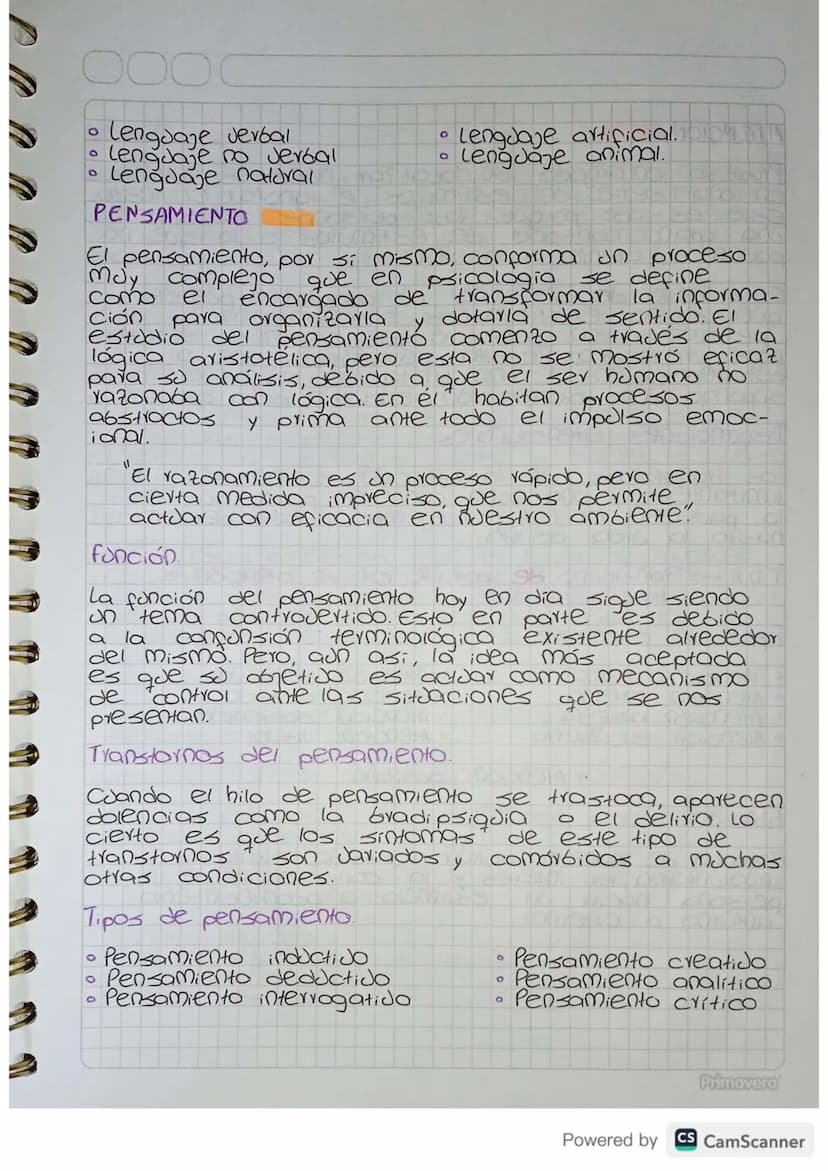 • Lenguaje verbal
• Lenguaje no verbal
• Lenguaje natural
• Lenguaje artificial.
• Lenguaje animal.
PENSAMIENTO
El pensamiento, por si mismo, conforma un proceso
muy complejo que en psicologia se define
como el encargado de transformar la informa-
ción para organizarla y dotarla de sentido. El
estudio del pensamiento comenzo a través de la
lógica aristotélica, pero esta no se mostró eficaz
para su análisis, debido a que el ser humano no
razonaba con lógica. En él habitan procesos
abstractos y prima ante todo el impulso emoc-
ional.
"El razonamiento es un proceso rápido, pero en
cierta medida impreciso, que nos permite
actuar con eficacia en nuestro ambiente."
función
La función del pensamiento hoy en día sigue siendo
un tema controvertido. Esto en parte es debido
a la confunsión terminológica existente alrededor
del mismo. Pero, aún así, la idea más aceptada
es que su objetivo es actuar como mecanismo
de control ante las situaciones que se nos
presentan.
Transtornos del pensamiento.
Cuando el hilo de pensamiento se trastoca, aparecen
dolencias como la bradipsiquia o el delirio. Lo
cierto es que los síntomas de este tipo de
transtornos son variados y comórbidos a muchas
otras condiciones.
Tipos de pensamiento
• Pensamiento inductivo
• Pensamiento deductivo
• Pensamiento interrogativo
• Pensamiento creativo
• Pensamiento analítico
• Pensamiento crítico
Primavera
Powered by CS CamScanner